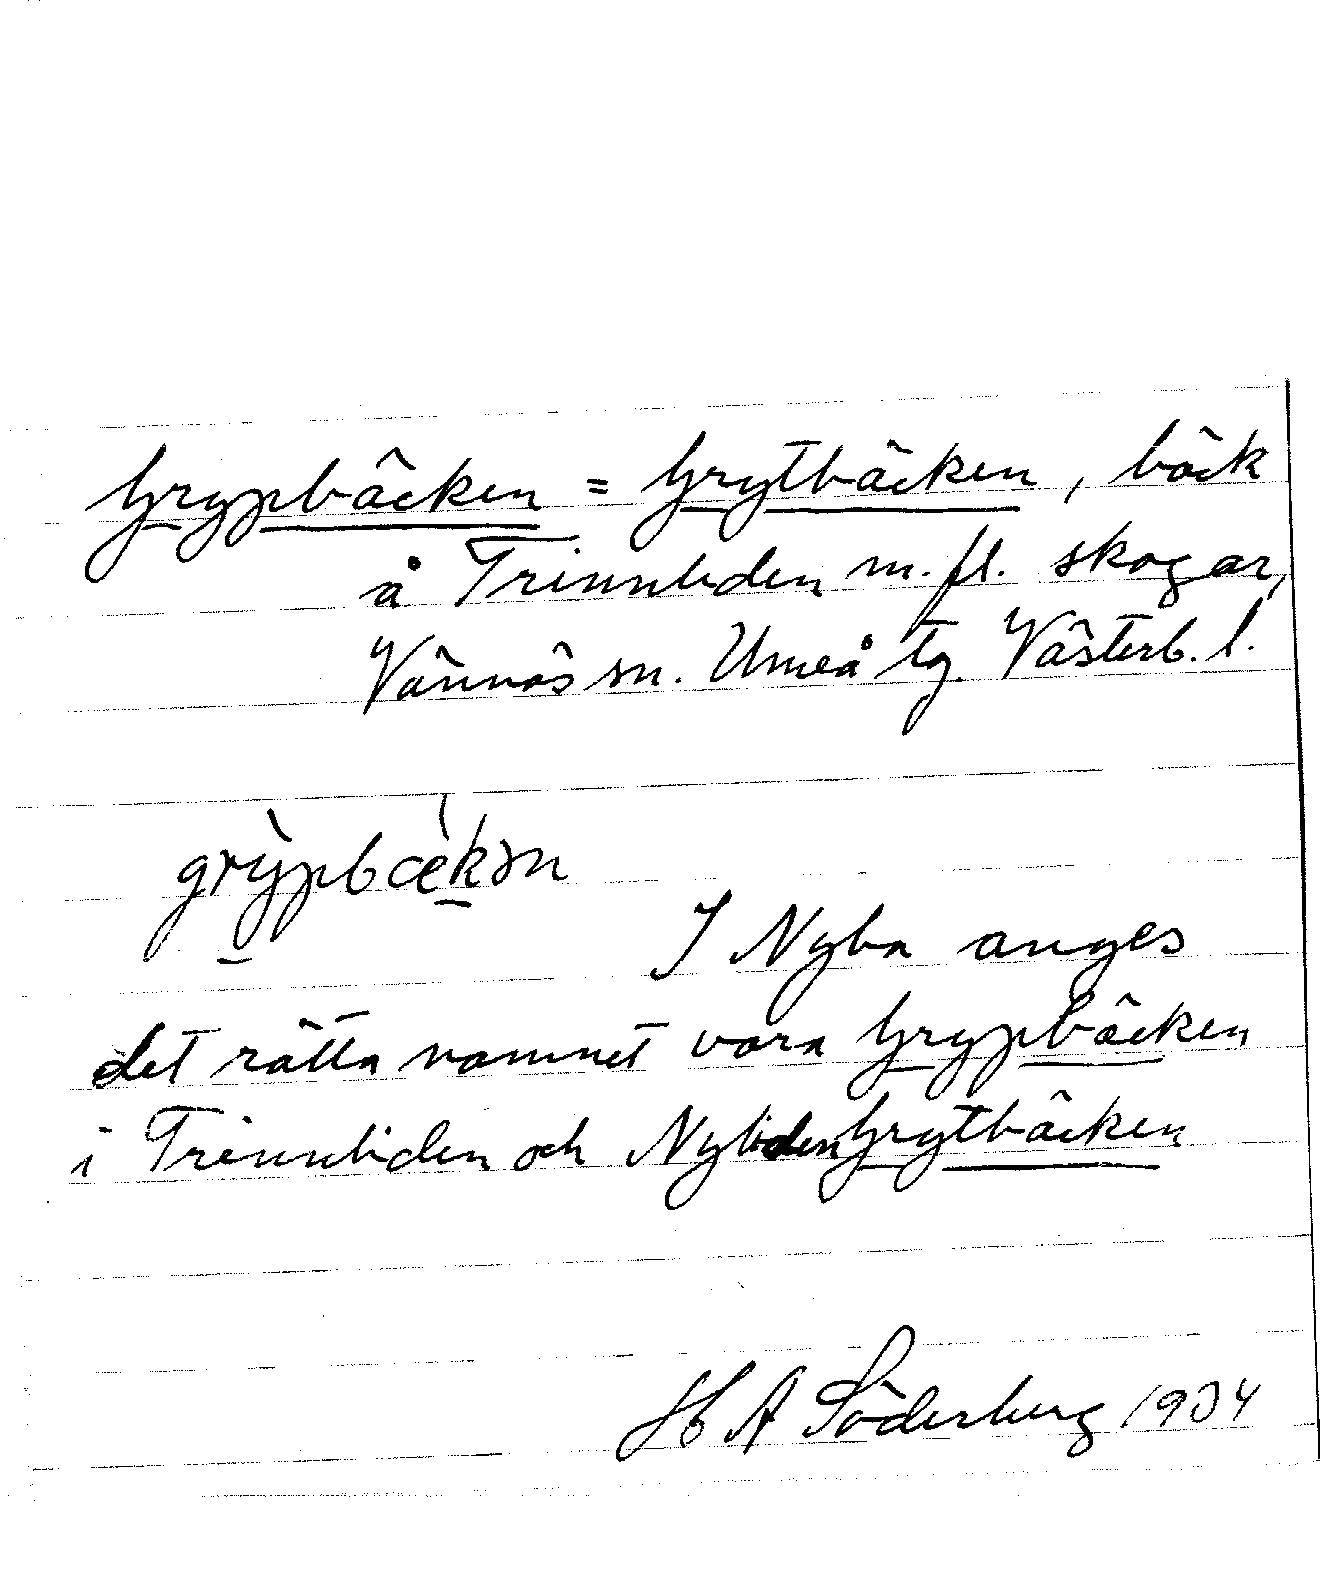 Grypbäcken = Grytbäcken, bäck
å Trinnliden m. fl. skogar,
Vännäs sn. Umeå tg. Västerb. l.
grỳpbæ̀kən
I Nyby anges
det rätta namnet vara Grypbäcken
i Trinnliden och Nyliden Grytbäcken
H A Söderberg 1934